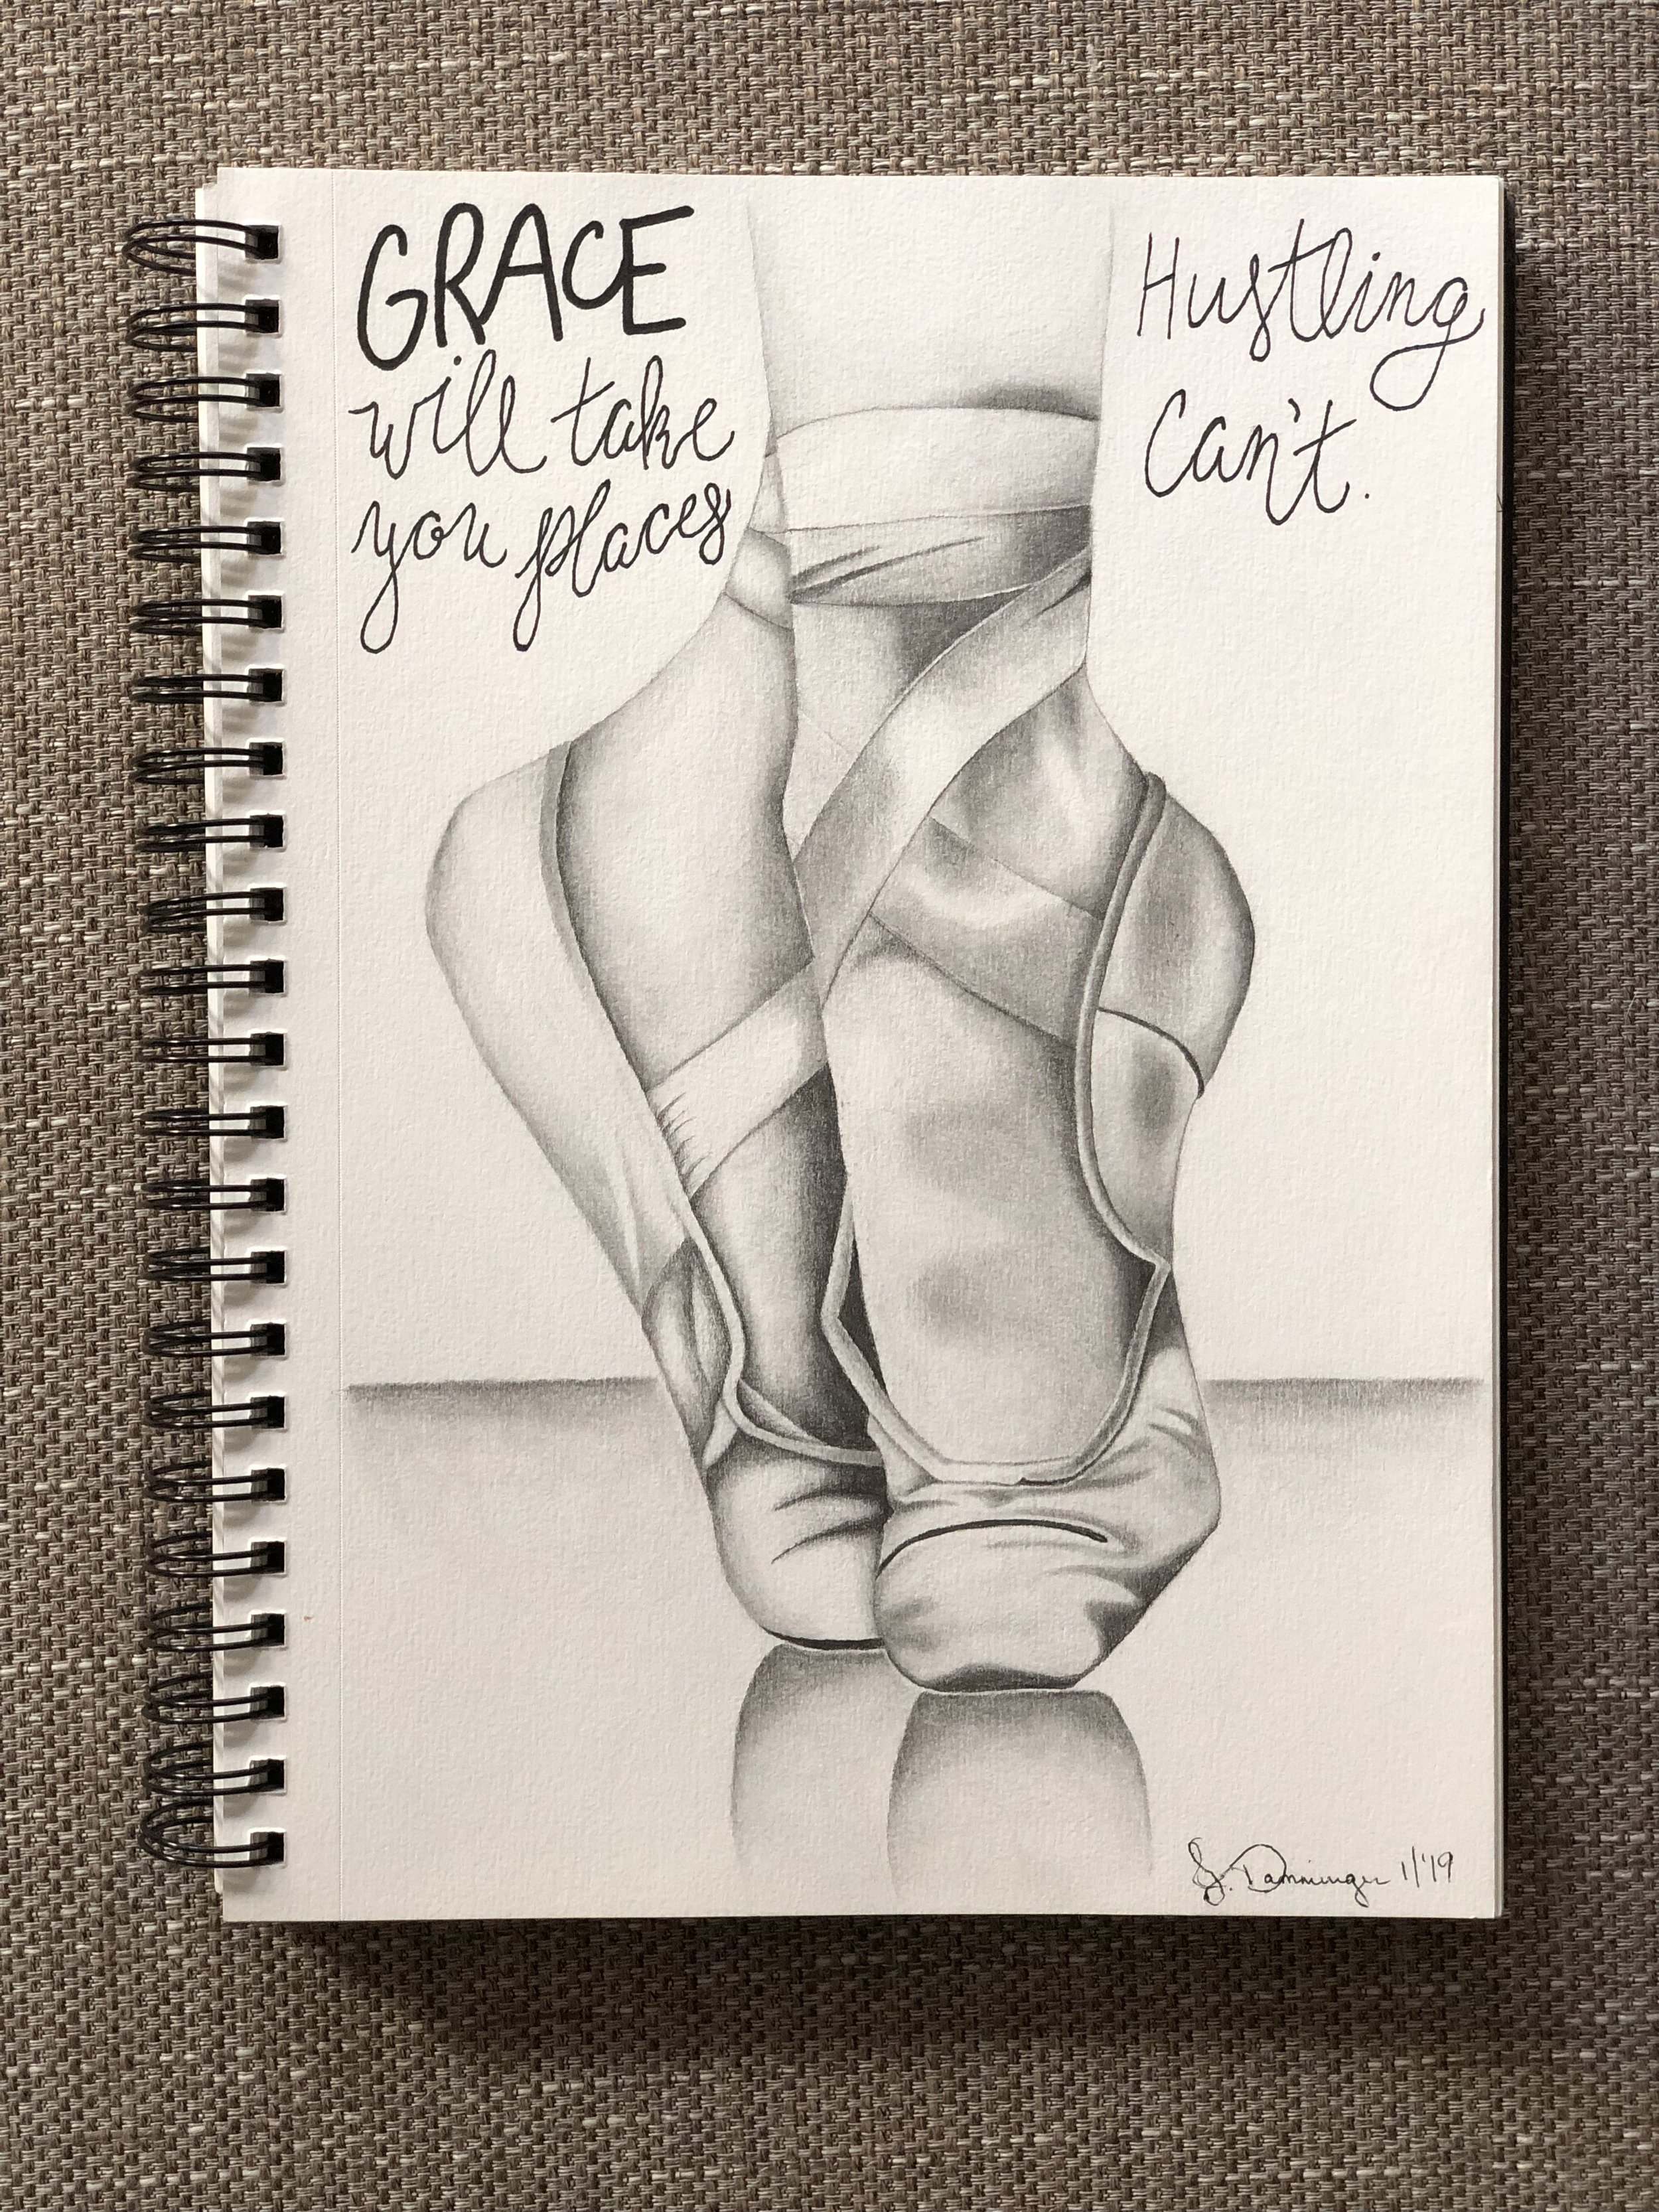 GRACE
will take
you places
Hustling
Can't.
J. Damminger 1/'19